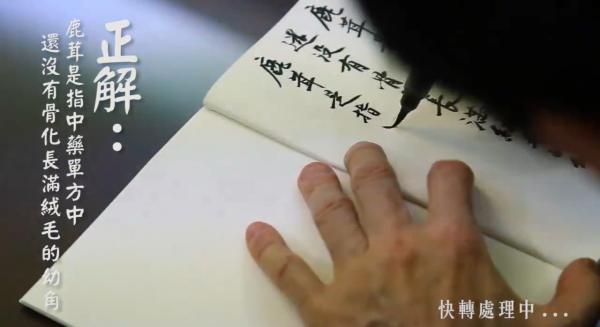 正解：
鹿茸是指中藥單方中
還沒有骨化長滿絨毛的幼角
鹿茸
還沒有骨 長滿
鹿茸是指
快轉處理中...